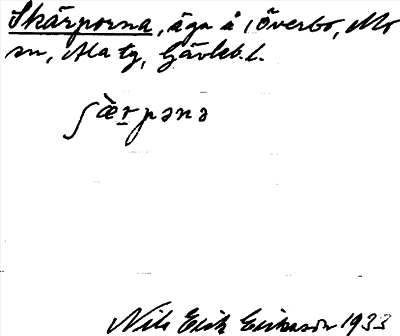 Skärporna, äga å i Överbo, Mo
sn, Ala tg, Gävleb. l.
ʃæ̀r̲pənə
Nils Erik Eriksson 1933